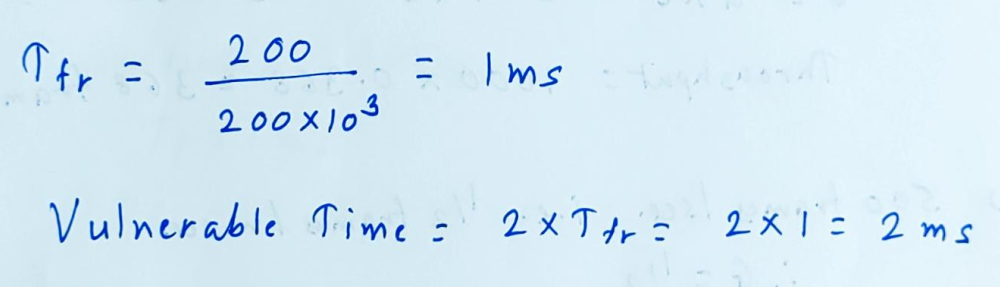 T fr = 200 / 200 × 10³ = 1 ms
Vulnerable Time = 2 × T fr = 2 × 1 = 2 ms